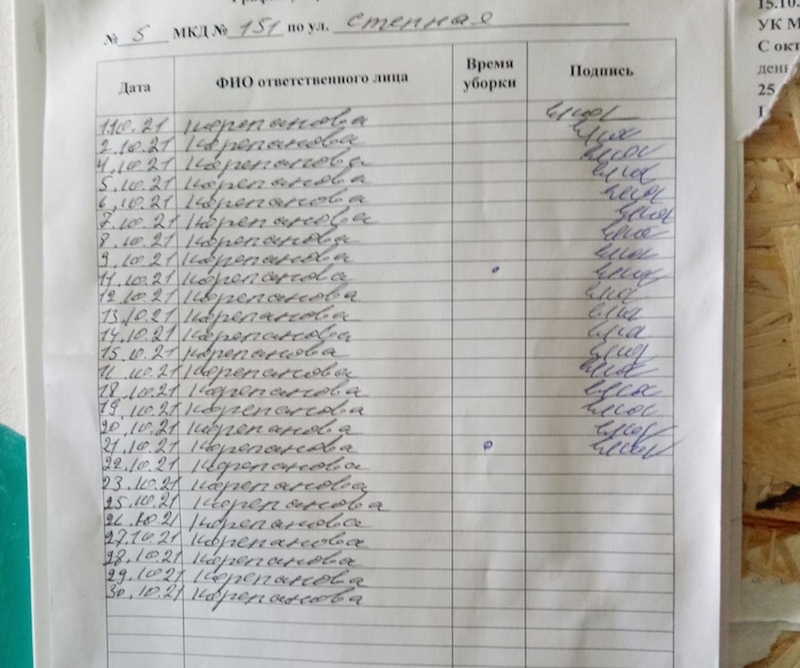 № 5 МКД № 151 по ул. Степная
Дата ФИО ответственного лица Время уборки Подпись
1.10.21 Корепанова
2.10.21 Корепанова
4.10.21 Корепанова
5.10.21 Корепанова
6.10.21 Корепанова
7.10.21 Корепанова
8.10.21 Корепанова
9.10.21 Корепанова
11.10.21 Корепанова
12.10.21 Корепанова
13.10.21 Корепанова
14.10.21 Корепанова
15.10.21 Корепанова
Корепанова
18.10.21 Корепанова
19.10.21 Корепанова
20.10.21 Корепанова
21.10.21 Корепанова
22.10.21 Корепанова
23.10.21 Корепанова
25.10.21 Корепанова
26.10.21 Корепанова
27.10.21 Корепанова
28.10.21 Корепанова
29.10.21 Корепанова
30.10.21 Корепанова
15.10.
УК М
С окт
25